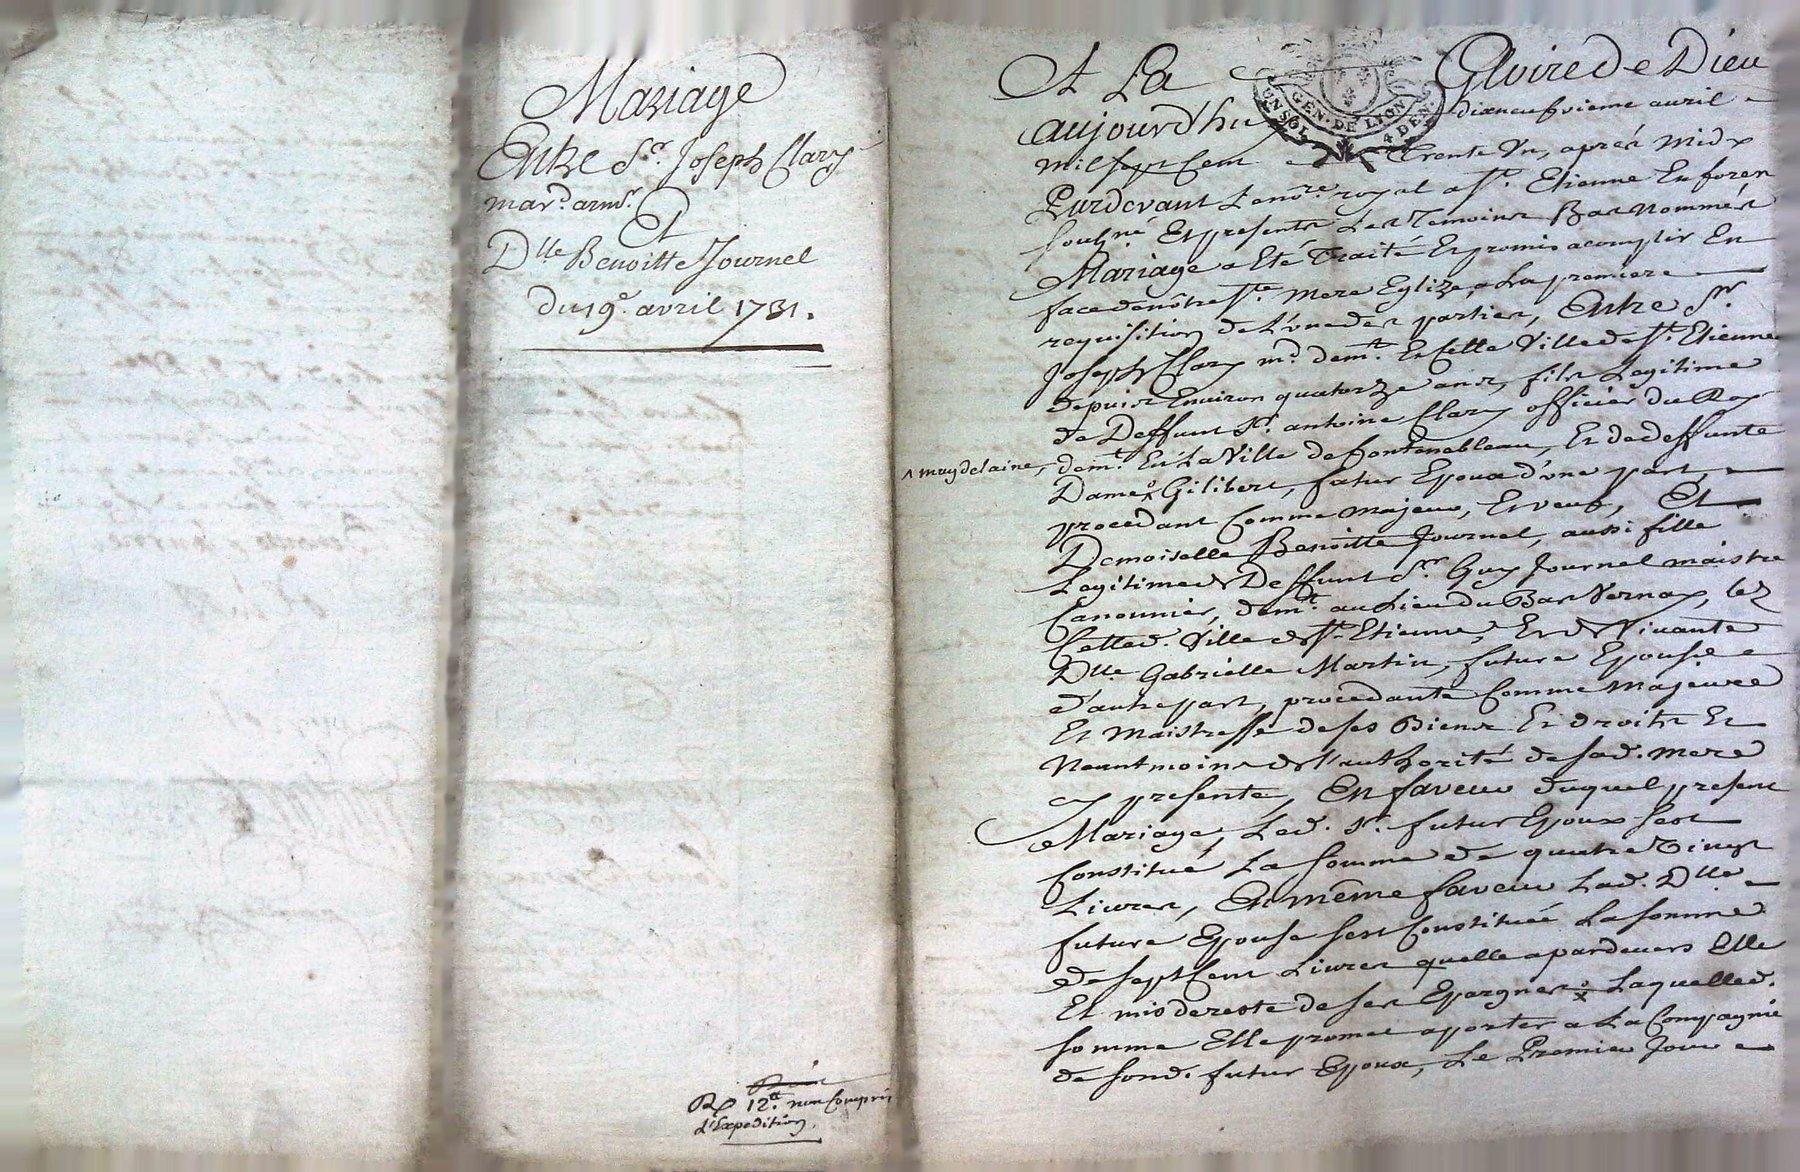 Mariage
Entre Sr. Joseph Clary
mard. armr.
Et
Dlle Benoitte Journel
du 19e. avril 1731.
Rx 12tt. non Compris
d'Expedition.
A La Gloire de Dieu
UN SOL GEN. DE LYON 4 DEN.
aujourdhuy dixneufvieme avril
mil sept Cent Trente Un, aprés midy
Pardevant Le nore. royal a St. Etienne En forén
sousné. Et presents Les Temoins Bas Nommés
Mariage a Eté Traité Et promis acomplir En
face de nôtre Ste. Mere Eglize, a La premiere
requisition de L'une des parties, Entre Sr.
Joseph Clary md. demt. En Cette Ville de St. Etienne
depuis Environ quatorze ans, fils Legitime
de Deffunt Sr. antoine Clary officier du Roy
demt. En La Ville de fontenebleau, Et de deffunte
^ magdelaine,
Dame ^ Gilibert, futur Epoux d'une part,
procedant Comme majeur, Et veuf, Et
Demoiselle Benoitte Journel, aussi fille
Legitime de Deffunt Sr. Guy Journel maistre
Canonnier, demt. au Lieu du Bas Vernay, lez
Cetted. Ville de St. Etienne, Et de Vivante
Dlle Gabrielle Martin, future Epouse
d'autre part, procedante Comme majeure
Et maistresse de ses Biens Et droits Et
Neantmoins de l'authorité de sad. mere
cy presente, En faveur duquel present
Mariage, Led. Sr. futur Epoux sest
Constitué La somme de quatre Vingt
Livres, En même faveur Lad. Dlle.
future Epouse sest Constituée La somme
de sept Cent Livres quelle a pardevers Elle
Et mis de reste de ses Epargnes x Laquelled.
somme Elle promet aporter a La Compagnie
de sond. futur Epoux, Le Premier Jour